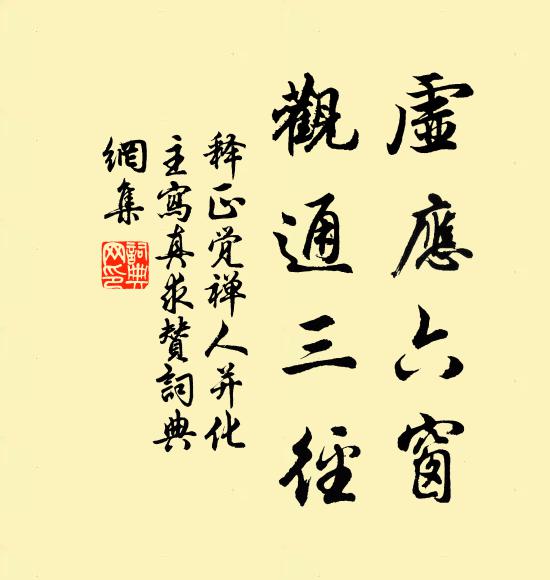 虛應六窗
觀通三徑
释正觉禅人并化
主寫真求賛詞典
網集
詞典網印